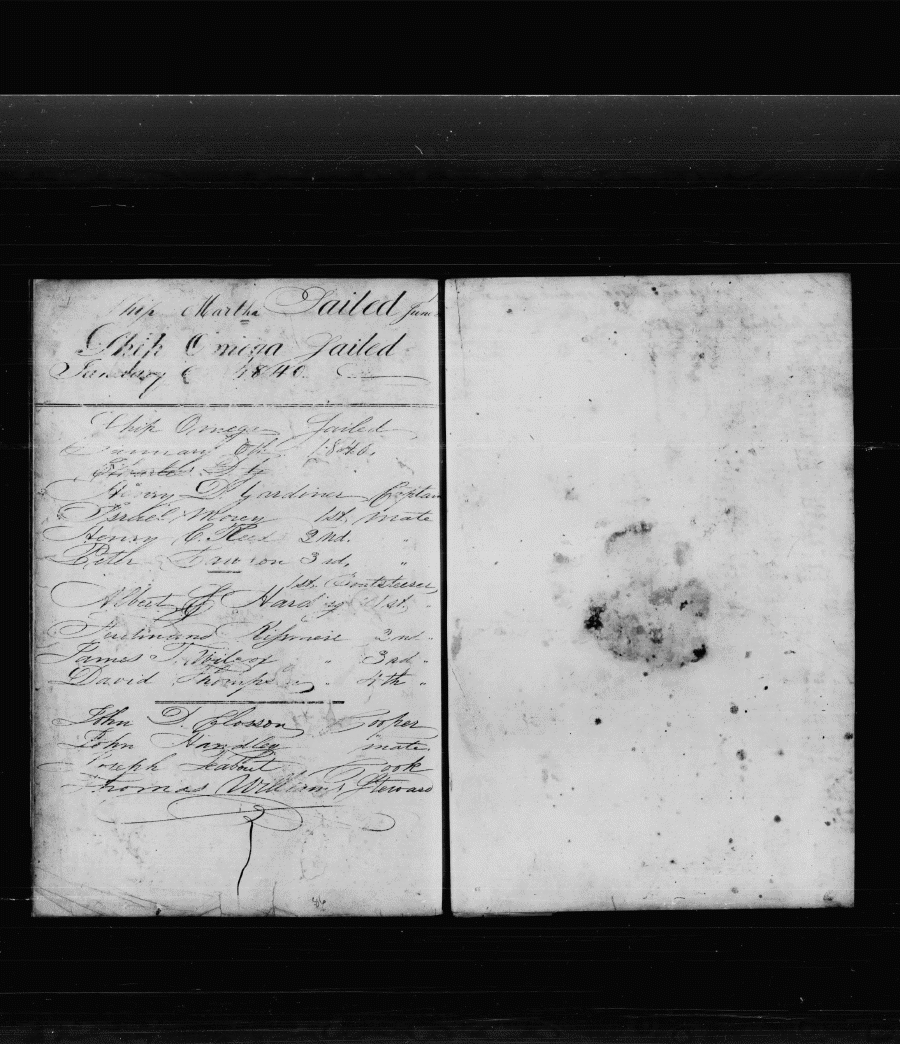 Ship Martha Sailed June
Ship Omega Sailed
January 6 1840.
Ship Omega Sailed
January 6th 1840.
Charles
Henry D. Gardiner Captain
Israel Morey 1st, mate
Henry C. Reed 2nd. "
Peter 3rd, "
1st. Boatsteerer,
Albert G Harding 1st. "
Ferdinand 2nd. "
James T. Wilcox " 3rd "
David Thompson " 4th "
John D. Closson Cooper
John Handley mate.
Joseph Cook
Thomas Williams Steward